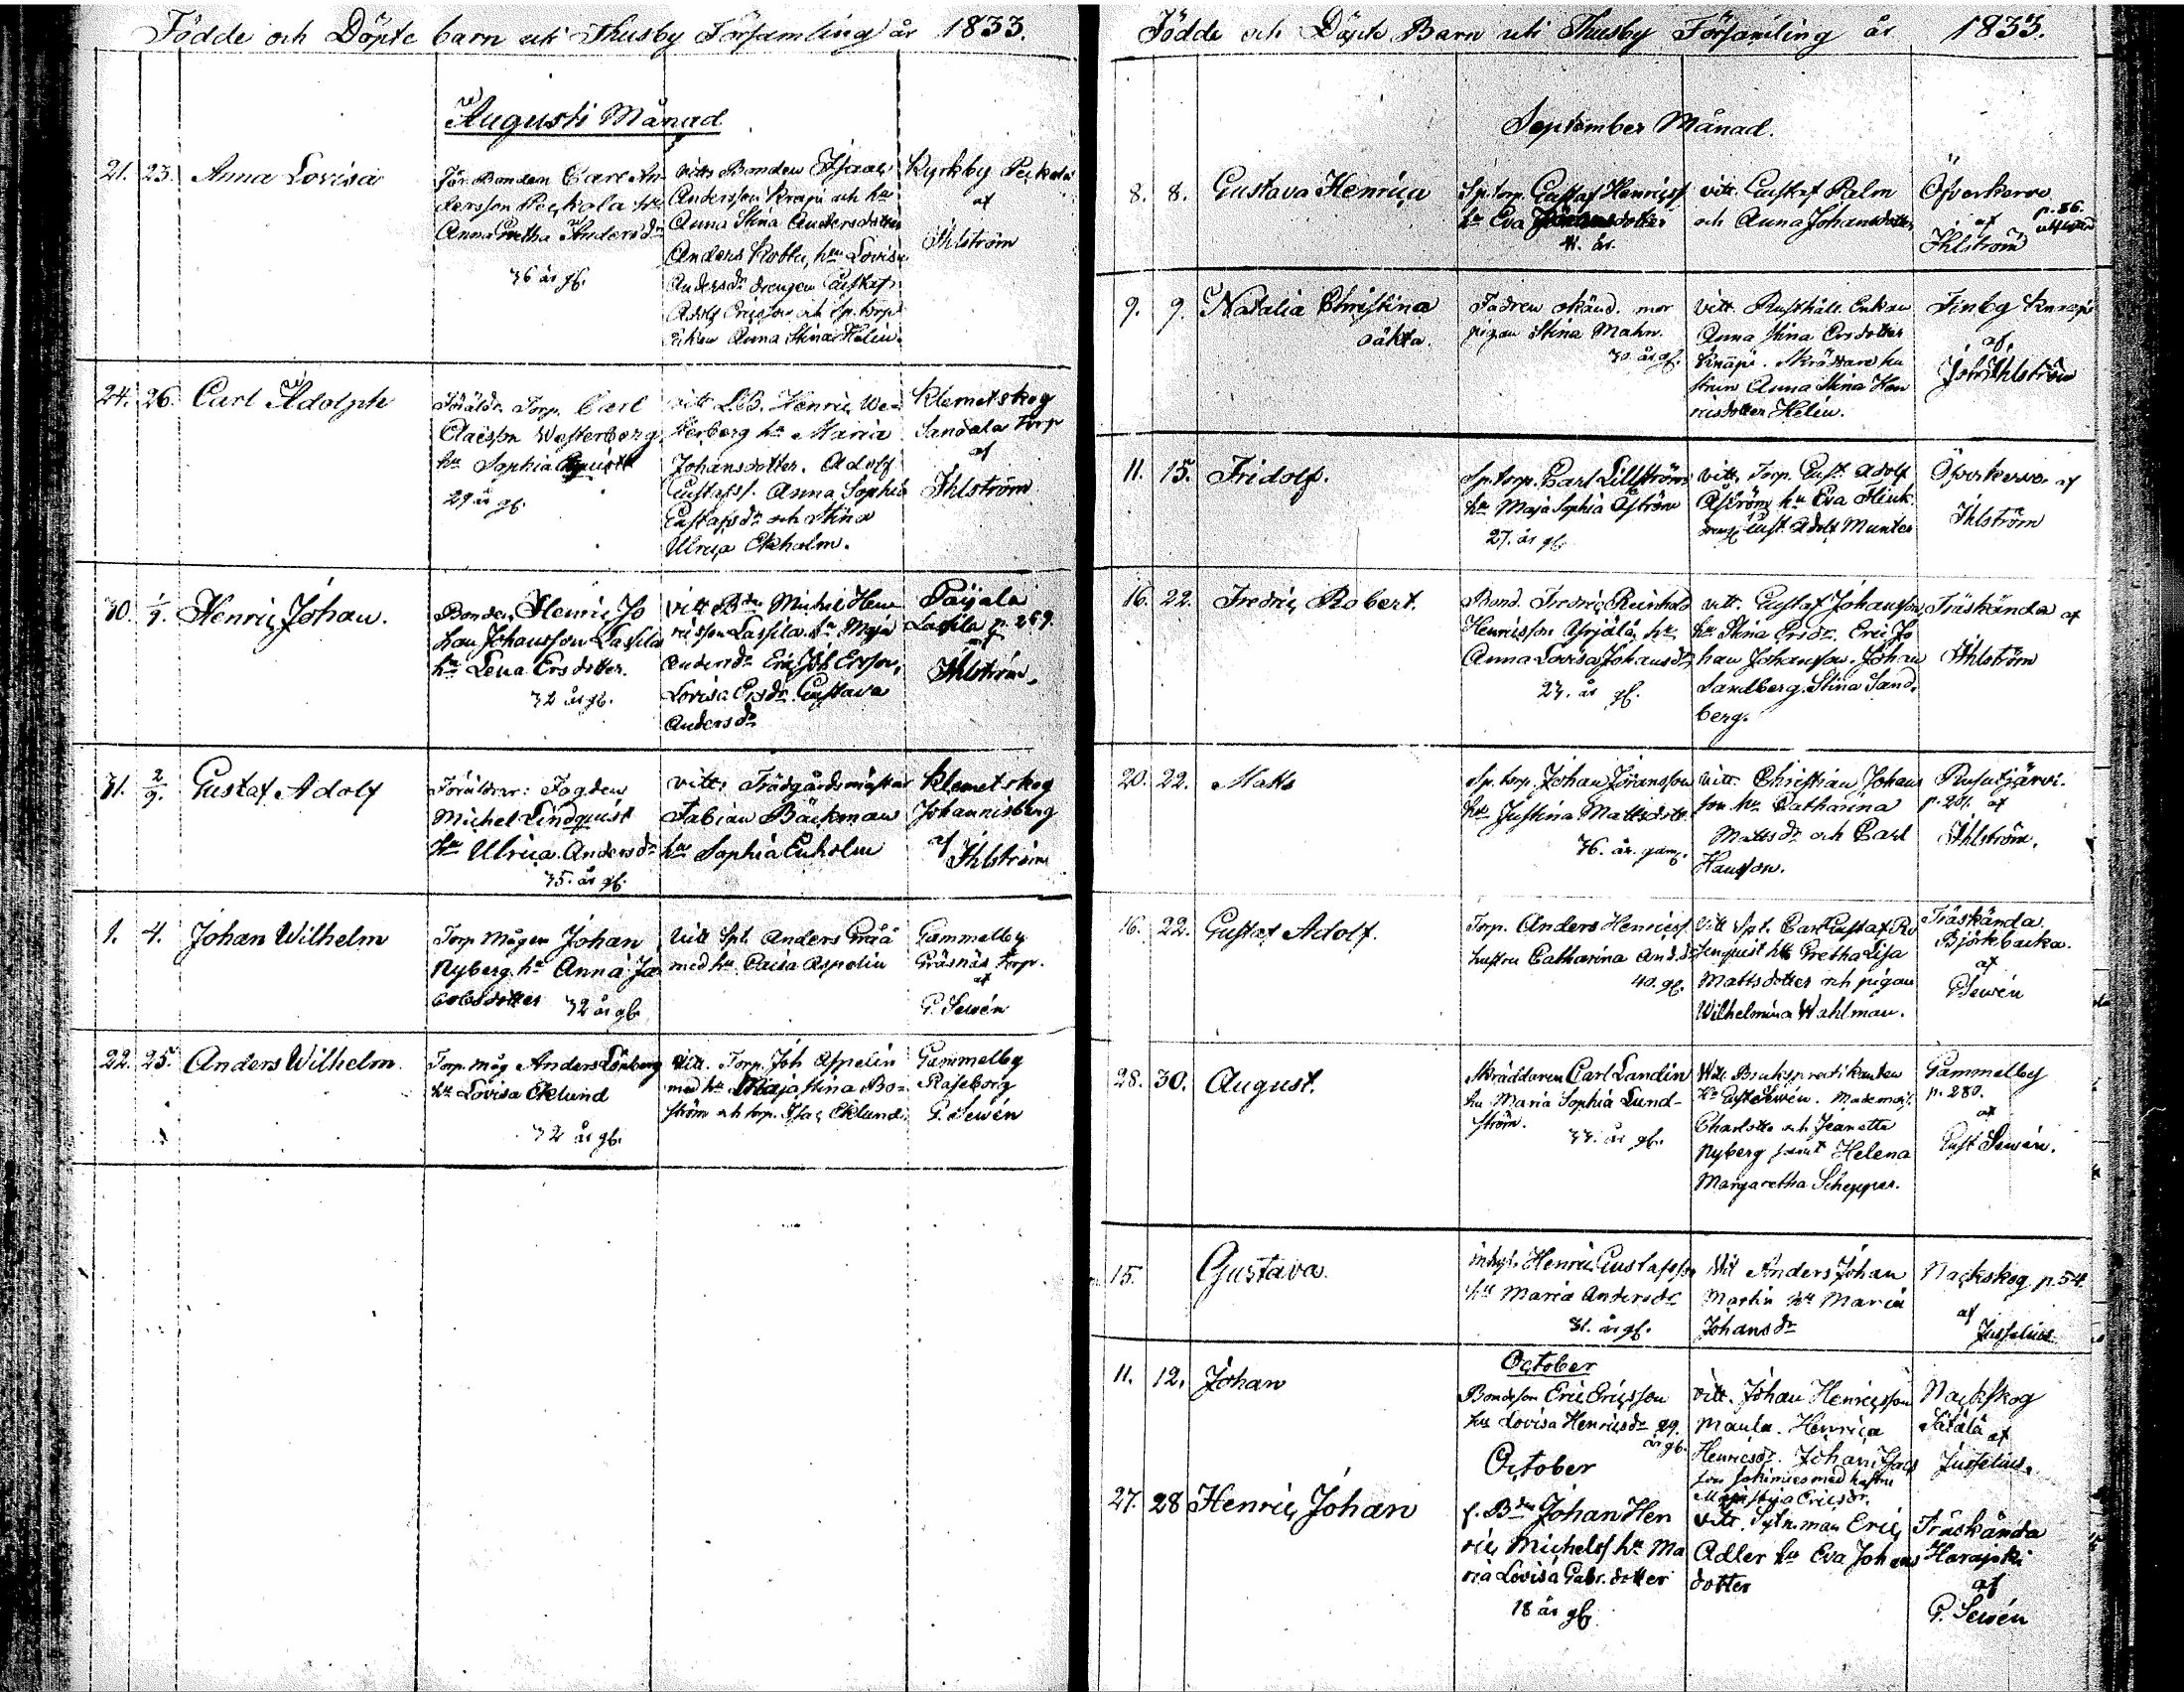 Födde och Döpte barn uti Thusby Församling år 1833.
Augusti Månad
21. 23. Anna Lovisa
för. Bonden Carl An-
dersson Peckola hu
Anna Greta Andersdr
36 år gl.
vitts Bonden Isaac
Andersson Knapi och hu
Anna Stina Andersdotter
Anders hu Lovisa
Andersdr drengen Gustaf
Adolf Ericsson och Sp. torp
Anna Stina Helin.
Kyrkby Peckola
af
Ihlström
24. 26. Carl Adolph
Föräldr. Torp. Carl
Claesson Westerberg
hu Sophia
29 år gl.
vitt L.B. Henric We-
sterberg hu Maria
Johansdotter. Adolf
Gustafss. Anna Sophia
Gustafsdr och Stina
Ulrica Ekholm.
Klemetskog
Sandala torp
af
Ihlström
30. 1/9. Henric Johan.
Bonden Henric Jo
han Johansson Lassila
hu Lena Ersdotter.
32 år gl.
vitt Bdn Michel Hen
ricsson Lassila hu Maja
Andersdr Eric Joh Ersson,
Lovisa Ersdr Gustava
Andersdr
Paijala
Lassila p. 259.
af
Ihlström.
31. 2/9. Gustaf Adolf
Föräldrar: Fogden
Michel Lindquist
hu Ulrica Andersdr
35. år gl.
vitt: Trädgårdsmästar
Fabian Bäckman
hu Sophia Enholm
Klemetskog
Johannisberg
af Ihlström
1. 4. Johan Wilhelm
Torp Mågen Johan
Nyberg hu Anna Ja
cobsdotter 32 år gl.
Vitt Spt. Anders Grå
med hu Caisa Aspelin
Gammelby
Gräsnäs torp.
af
G. Sewén
22. 25. Anders Wilhelm.
Torp. måg Anders Lönberg
hu Lovisa Eklund
32 år gl.
Vitt. Torp. Joh Aspelin
med hu Maja Stina Bo-
ström och torp. Isac Eklund.
Gammelby
Raseborg
G. Sewén
Födde och Döpte Barn uti Thusby Församling år 1833.
September Månad.
8. 8. Gustava Henrica
Sp. torp. Gustaf Henricss
hu Eva Johansdotter
41. år.
vitt. Gustaf Palm
och Anna Johansdotter
Öfverkervo
p. 86.
af
Ihlström
9. 9. Natalia Christina
oäkta.
Fadren okänd. mor
pigan Stina Malm.
30. år gl.
vitt. Rusthåll. Enkan
Anna Stina Ersdotter
Knapi. Skräddare hu
strun Anna Stina Hen
ricsdotter Helin.
Finby Knapi
af
Ihlström
11. 15. Fridolf.
Sp. torp. Carl Lillström
hu Maja Sophia Åström
27. år gl.
vitt. Torp. Gust. Adolf
Åström hu Eva Flink
dreng Gust. Adolf Munter
Öfverkervo af
Ihlström
16. 22. Fredric Robert.
Bond. Fredric Reinhold
Henricsson Yrjälä, hu
Anna Lovisa Johansdr
23. år gl.
vitt. Gustaf Johansson
hu Stina Ersdr. Eric Jo
han Johansson. Johan
Sandberg. Stina Sand.
berg.
Träskända af
Ihlström
20. 22. Matts
Sp. torp. Johan Göransson
hu Justina Mattsdotr
36. år. gam.
vitt. Christian Johans
son hu Catharina
Mattsdr och Carl
Hansson.
Rusutjärvi.
p. 201. af
Ihlström.
16. 22. Gustaf Adolf.
Torp. Anders Henricss.
hustru Catharina And.dr
40. gl.
Vitt Spt. Carl Gustaf Ro
senquist hu Gretha Lisa
Mattsdotter och pigan
Wilhelmina Wahlman.
Träskända
Björkbacka.
af
G Sewén
28. 30. August.
Skräddaren Carl Landin
hu Maria Sophia Lund-
ström.
33. år gl.
Witt Bruks practikanten
Hr Gust Sewén. Mademois.
Charlotta och Jeanette
Nyberg samt Helena
Margaretha Schepper.
Gammelby
p. 280.
af
Gust Sewén.
15. Gustava.
Inhys. Henric Gustafsson
hu Maria Andersdr
31. år gl.
Vit Anders Johan
Martin hu Maria
Johansdr
Nackskog p. 54.
af
Jusselius
October
11. 12. Johan
Bondeson Eric Ericsson
hu Lovisa Henricsdr 29.
år gl.
vitt. Johan Henricsson
Maula. Henrica
Henricsdr. Johan Isacs
son med hustru
Maja Stija Ericsdr.
Nackskog
Sätälä af
Jusselius.
October
27. 28 Henric Johan
f. Bdn Johan Hen
ric Michelss hu Ma
ria Lovisa Gabr. dotter
18 år gl.
vitt. Sytn.man Eric
Adler hu Eva Johans
dotter
Träskända
Harajoki
af
G. Sewén